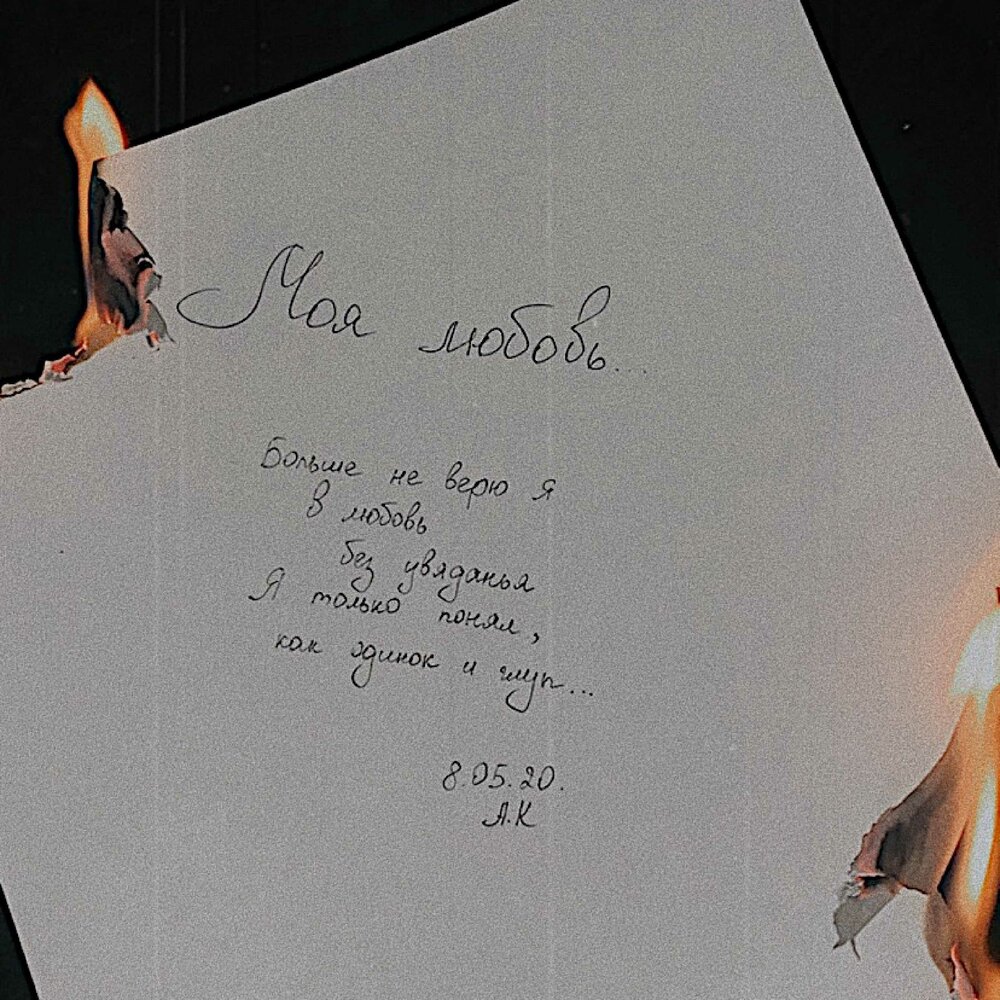 Моя любовь...
Больше не верю я
в любовь
без увяданья
Я только понял,
как одинок и глуп...
8.05.20.
А.К